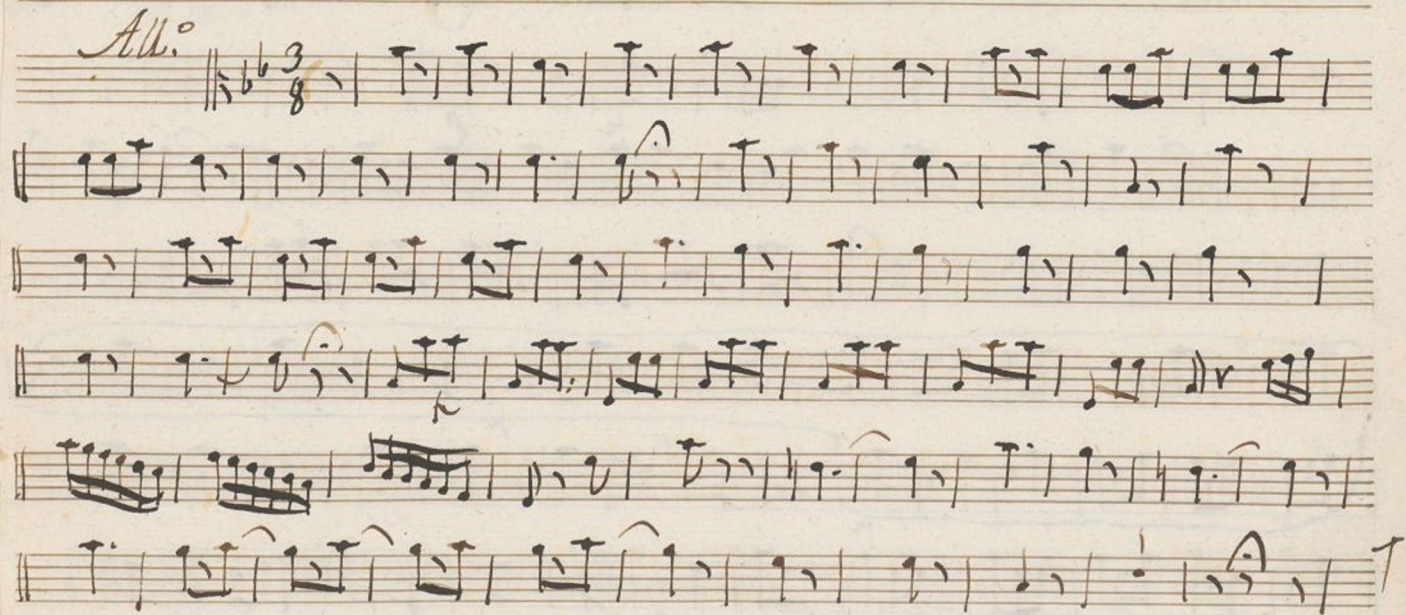 All:º
3
8
p